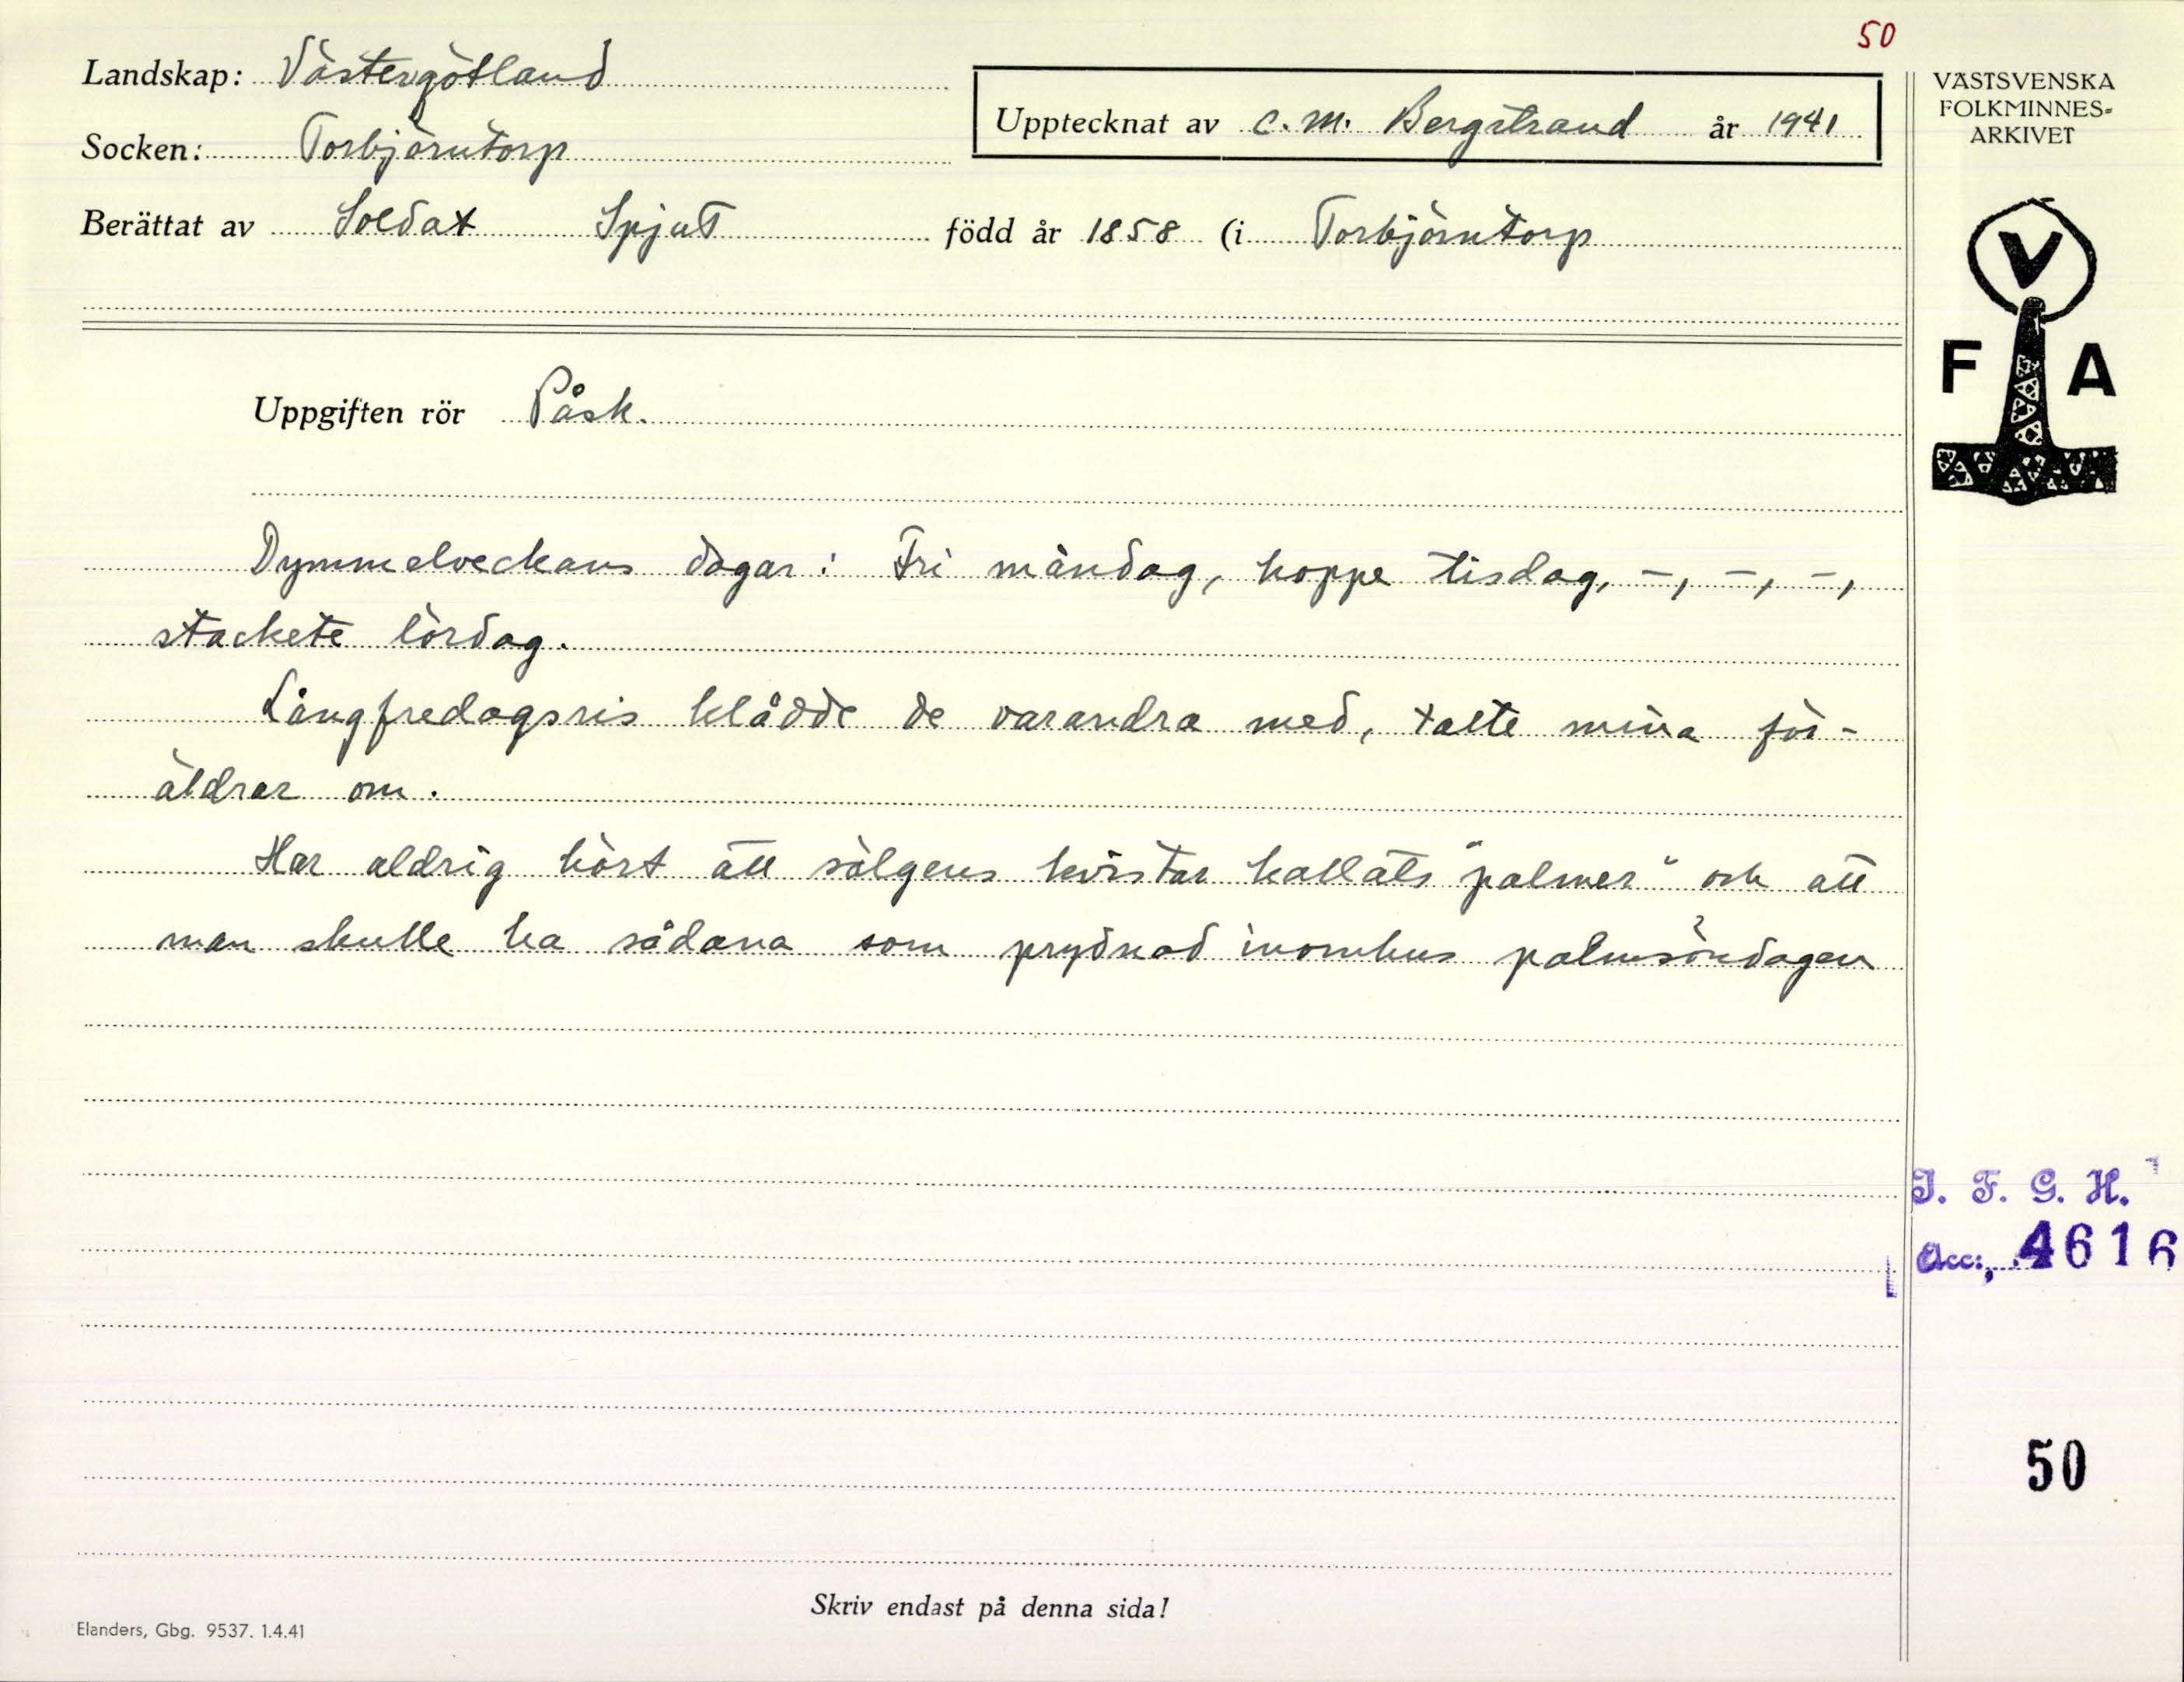 50
Landskap: Västergötland
Socken: Torbjörntorp
Upptecknat av C. M. Bergstrand år 1941
Berättat av Soldat Spjut född år 1858 (i Torbjörntorp
VÄSTSVENSKA
FOLKMINNES-
ARKIVET
V
F A
Uppgiften rör Påsk.
Dymmelveckans dagar: Fri måndag, hoppe tisdag, -, -, -,
stackete lördag.
Långfredagsris klådde de varandra med, talte mina för-
äldrar om.
Har aldrig hört att sälgens kvistar kallats "palmer" och att
man skulle ha sådana som prydnad inomhus palmsöndagen
I. F. G. H.
Acc:, 4616
50
Skriv endast på denna sida!
Elanders, Gbg. 9537. 1.4.41